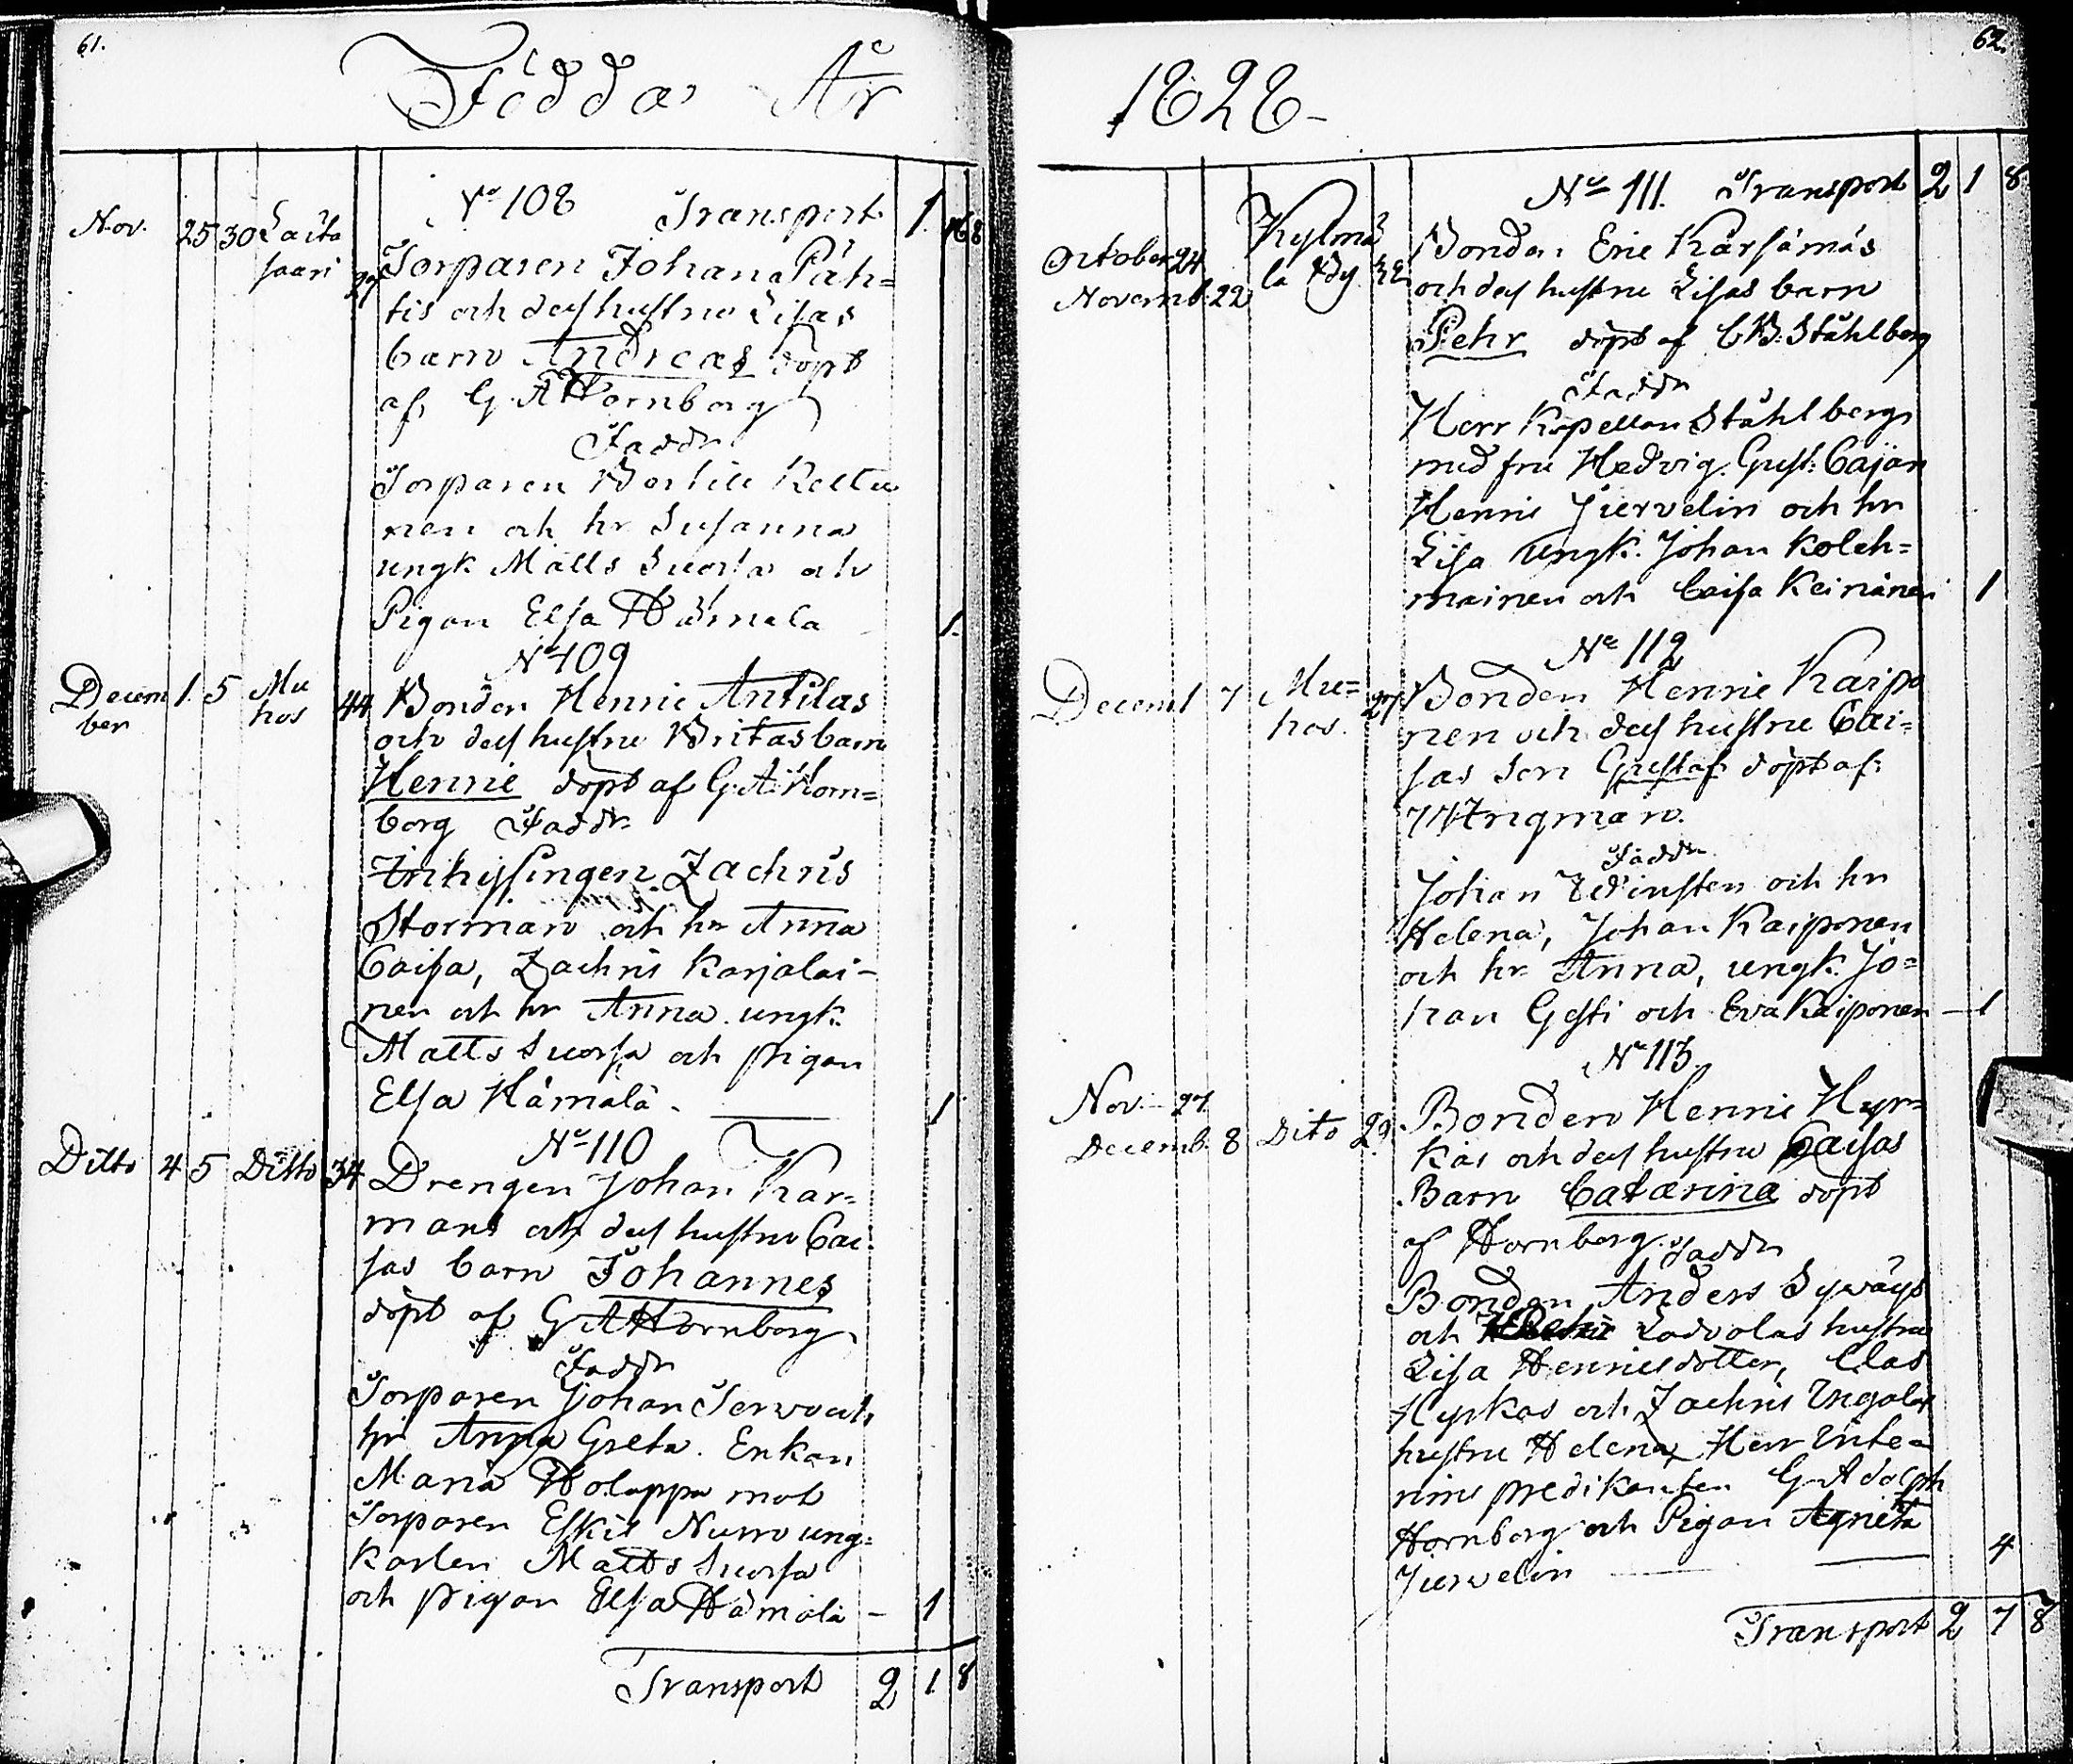 61.
Födda År
Nº 108 Transport 1. 16 8
Nov. 25 30 Laita
saari 29 Torparen Johan Päh=
tis och dess hustru Lisas
barn Andreas döpt
af G. A Hornborg
Faddr
Torparen Bertill Keltu
nen och hr Susanna
ungk Matts Suorsa och
Pigan Elsa Hämälä 1.
Nº 109
Decem 1. 5 Mu 44 Bonden Henric Anttilas
ber hos och dess hustru Britas barn
Henric döpt af G. A. Horn=
borg Faddr
Zachris
Storman och hr Anna
Caisa, Zachris Karjalai-
nen och hr Anna. ungk.
Matts Suorsa och pigan
Elsa Hämälä. 1
Nº 110
Ditto 4 5 Ditto 34 Drengen Johan Kar=
mans och dess hustru Cai
sas barn Johannes
döpt af G A Hornborg
Faddr
Torparen Johan Serwo och
hr Anna Greta. Enkan
Maria Holappa mot
Torparen Eskil Nurro ung=
karlen Matts Suorsa
och pigan Elsa Hämälä - 1
Transport 2 1 8
62.
1828-
Nº 111. Transport 2 1 8
October 24 Kylmä
Novemb. 22 la 32 Bonden Eric Kärsämäs
och dess hustru Lisas barn
Pehr döpt af C B: Ståhlberg
Faddr
Herr Kapellan Ståhlberg
med fru Hedvig. Gust: Cajan
Henric Jiervelin och hr
Lisa ungk. Johan Koleh=
mainen och Caisa Keinänen 1
Nº 112
Decem 1 7 Mu= 27 Bonden Henric Kaipo
hos. nen och dess hustru Cai=
sas son Gustaf döpt af
Ingman.
Faddr
Johan Winsten och hr
Helena, Johan Kaiponen
och hr Anna, ungk. Jo=
han Gesti och Eva Kaiponen - 1
Nº 113.
Nov. - 27
Decemb. 8 Dito 29. Bonden Henric Hyr=
käs och dess hustru Caisas
Barn Catarina döpt
af Hornborg. Faddr
Bonden Anders Sywäys
och Ladvolas hustru
Lisa Henricsdotter, Clas
Hyrkas och Zachris Ingalas
hustru Helena, Herr Inte=
rims predikanten G Adolph
Hornborg och Pigan Agnета
Jierwelin 4
Transport 2 7 8